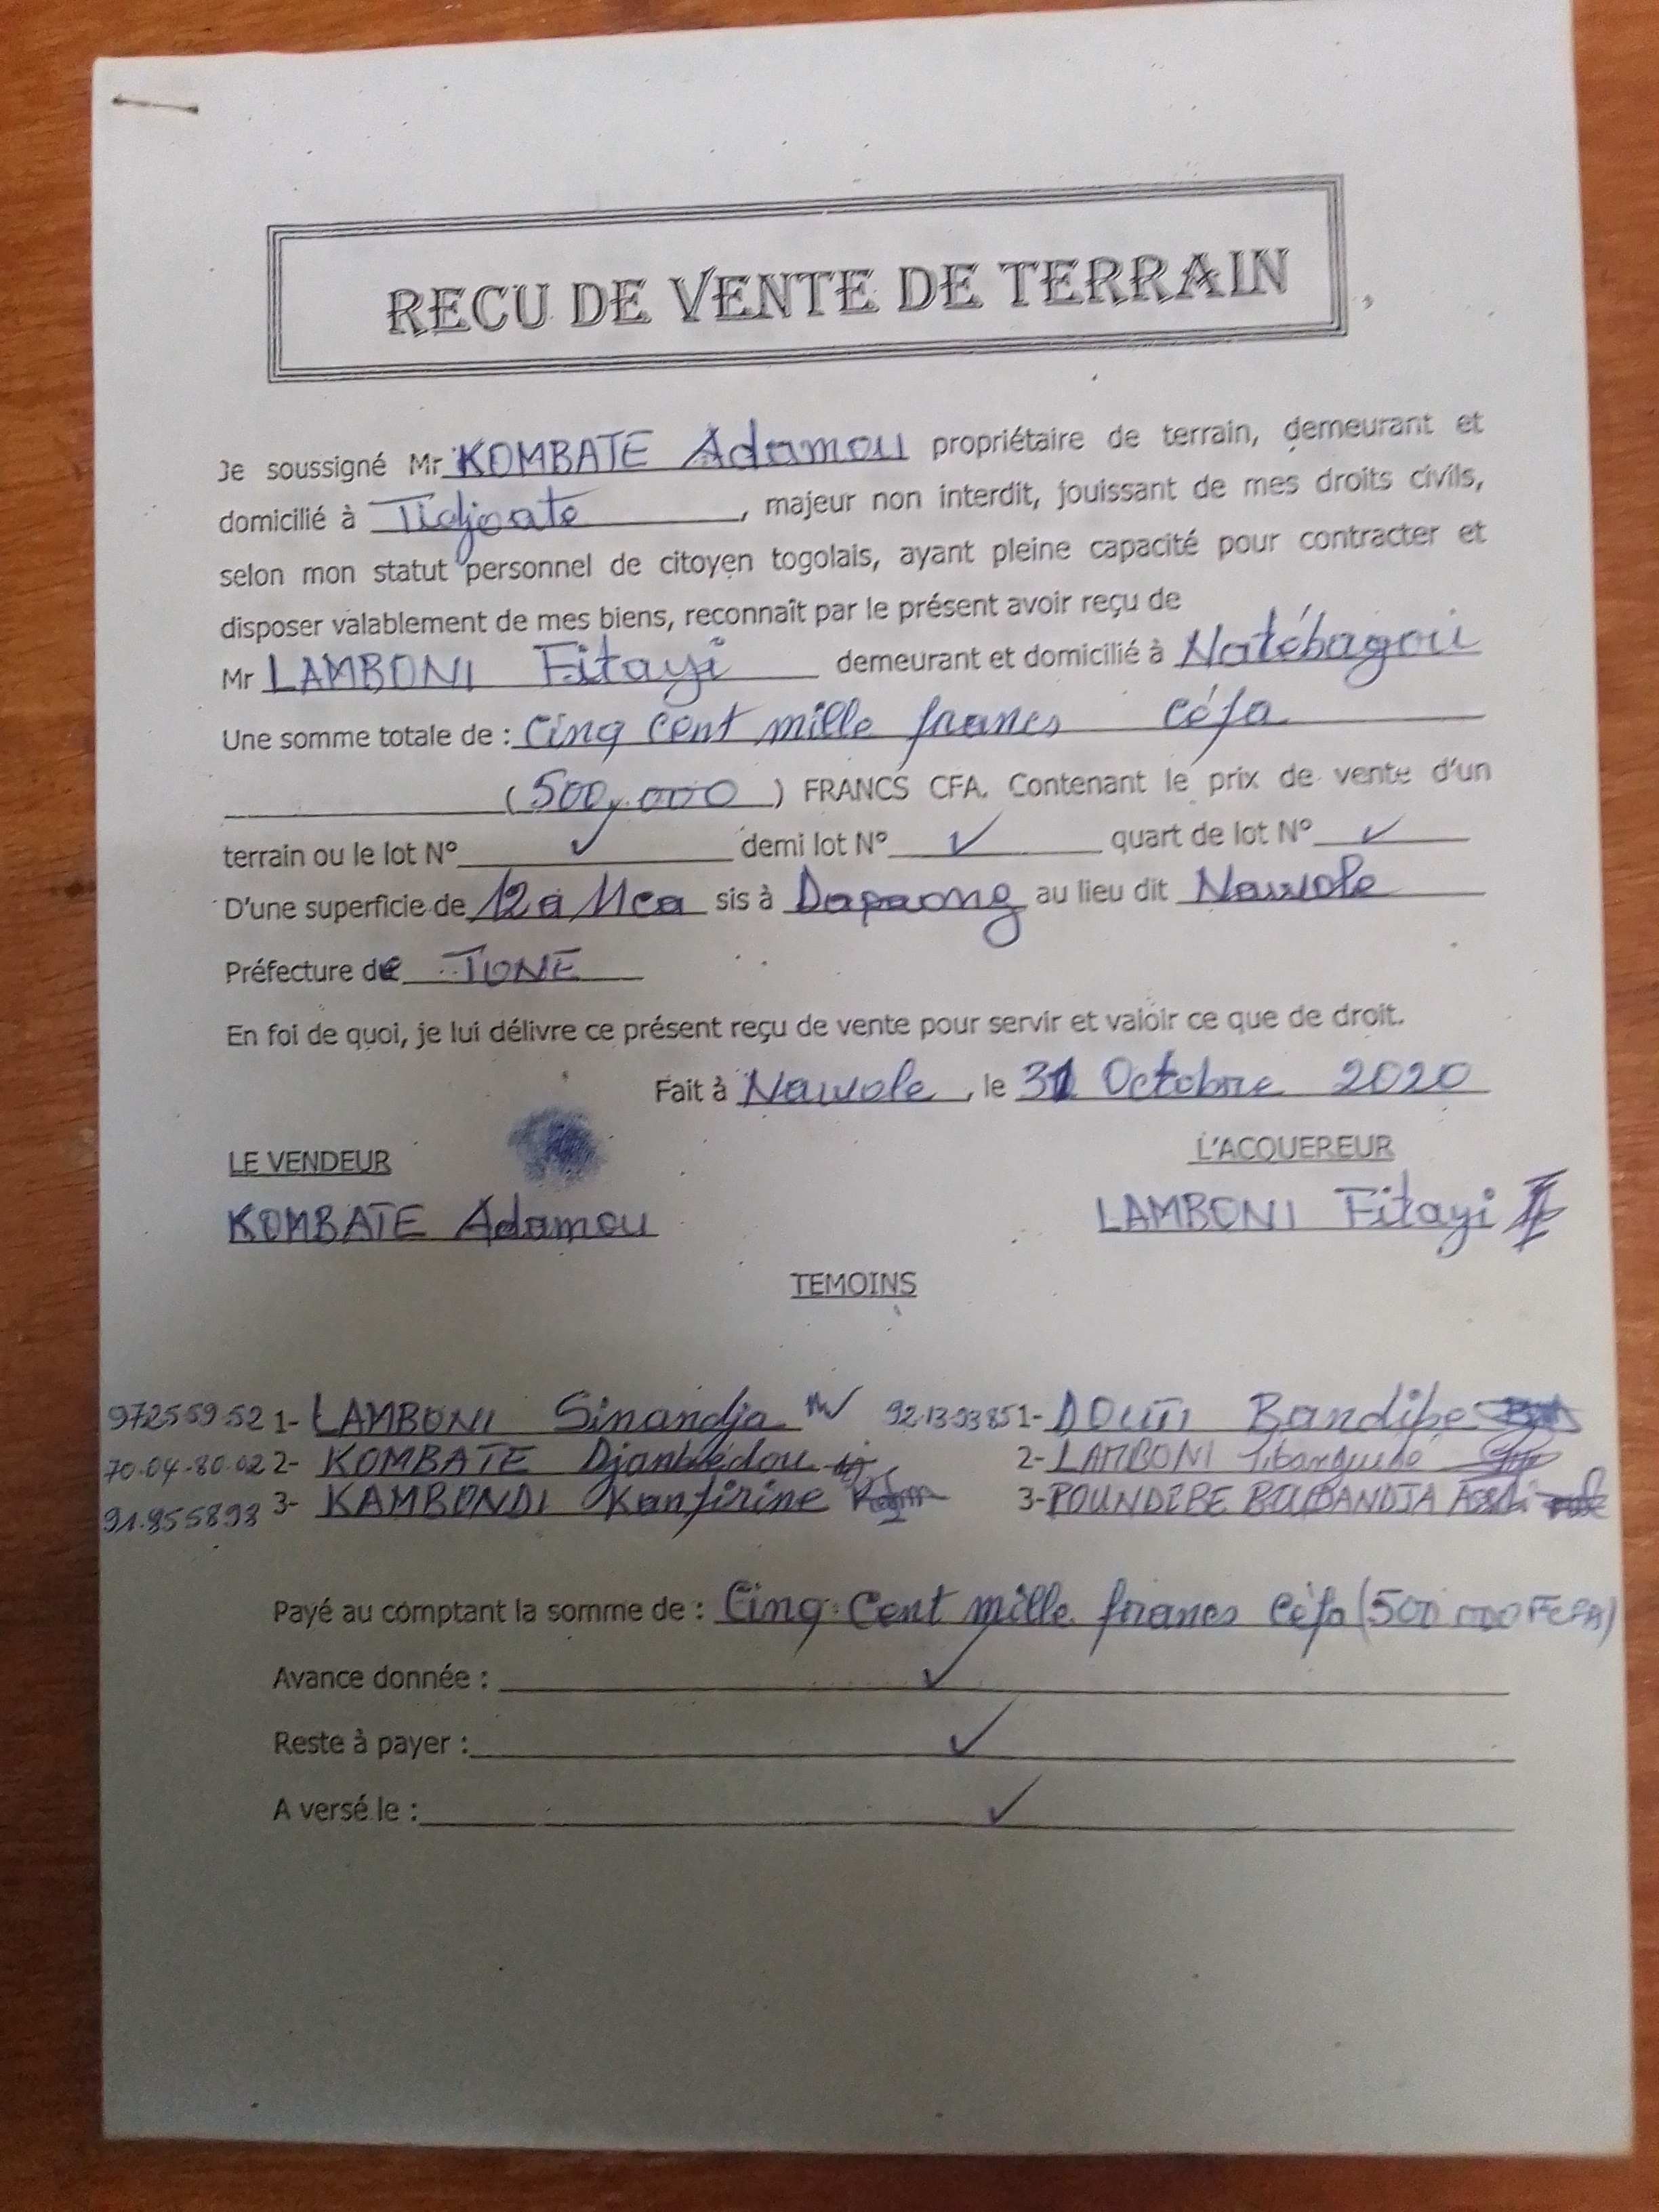 RECU DE VENTE DE TERRAIN
Je soussigné Mr KOMBATE Adamou propriétaire de terrain, demeurant et
domicilié à Tidjoate, majeur non interdit, jouissant de mes droits civils,
selon mon statut personnel de citoyen togolais, ayant pleine capacité pour contracter et
disposer valablement de mes biens, reconnaît par le présent avoir reçu de
Mr LAMBONI Fitayi demeurant et domicilié à Natébagou
Une somme totale de : Cinq cent mille francs céfa
(500.000) FRANCS CFA. Contenant le prix de vente d'un
terrain ou le lot N° demi lot N° quart de lot N°
D'une superficie de 12a 11ca sis à Dapaong au lieu dit Nawole
Préfecture de TONE
En foi de quoi, je lui délivre ce présent reçu de vente pour servir et valoir ce que de droit.
Fait à Nawole, le 31 Octobre 2020
LE VENDEUR L'ACQUEREUR
KOMBATE Adamou LAMBONI Fitayi
TEMOINS
97255952 1- LAMBONI Sinandja 92.13.93.85 1- DOUTI Bandibe
70.04.80.02 2- KOMBATE Djanbédou 2- LAMBONI
91.955898 3- KAMBONDI Kanfirine 3- POUNDEBE
Payé au comptant la somme de : Cinq Cent mille francs Céfa (500 000 FCFA)
Avance donnée :
Reste à payer :
A versé le :